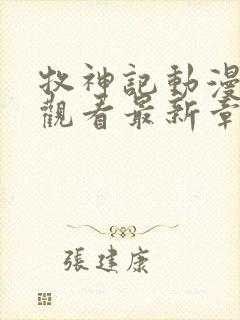 牧神記動漫
觀看最新章
張建康